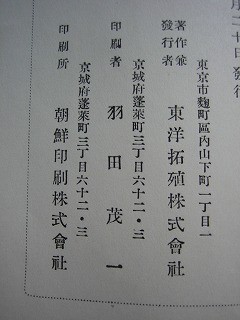 月二十日發行
東京市麴町區內山下町一丁目一
著作兼
發行者
東洋拓殖株式會社
京城府蓬萊町三丁目六十二・三
印刷者
羽田茂一
京城府蓬萊町三丁目六十二・三
印刷所
朝鮮印刷株式會社